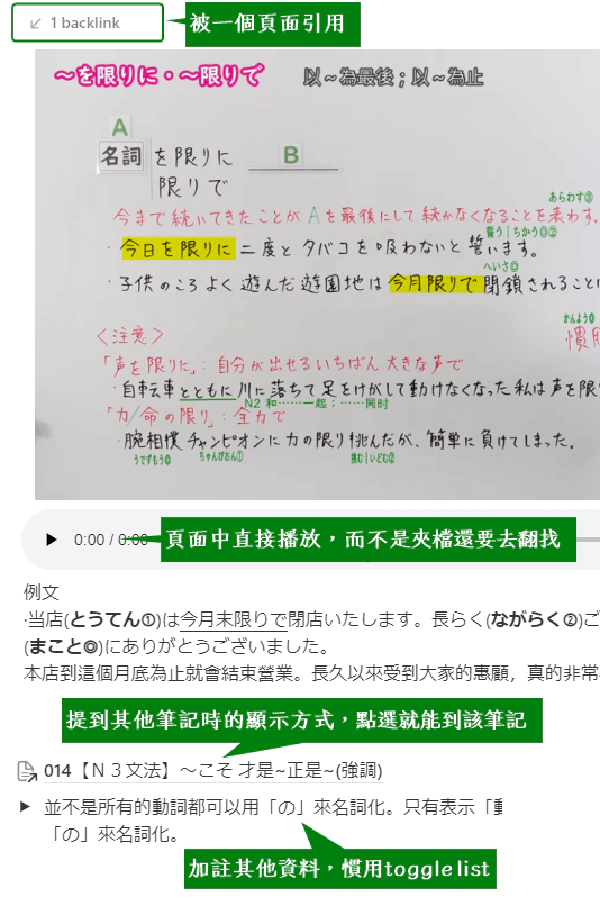 1 backlink
被一個頁面引用
～を限りに・～限りで 以～為最後；以～為止
A
名詞 を限りに B
限りで
あらわす③
今まで続いてきたことがAを最後にして続かなくなることを表わす。
誓う|ちかう0②
・今日を限りに二度とタバコを吸わないと誓います。
へいさ0
・子供のころよく遊んだ遊園地は今月限りで閉鎖されることに
かんよう0
＜注意＞
慣用
「声を限りに」：自分が出せるいちばん大きな声で
・自転車とともに川に落ちて足をけがして動けなくなった私は声を限り
N2 和……一起；……同时
「力/命の限り」：全力で
・腕相撲チャンピオンに力の限り挑んだが、簡単に負けてしまった。
うでずもう0 ちゃんぴおん① 挑む|いどむ②
0:00 / 0:00
頁面中直接播放，而不是夾檔還要去翻找
例文
·当店(とうてん①)は今月末限りで閉店いたします。長らく(ながらく②)ご
(まこと◎)にありがとうございました。
本店到這個月底為止就會結束營業。長久以來受到大家的惠顧，真的非常
提到其他筆記時的顯示方式，點選就能到該筆記
014【Ｎ３文法】～こそ 才是~正是~(強調)
並不是所有的動詞都可以用「の」來名詞化。只有表示「動
「の」來名詞化。
加註其他資料，慣用togglelist